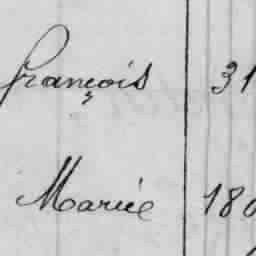 françois 31
Mariée 180